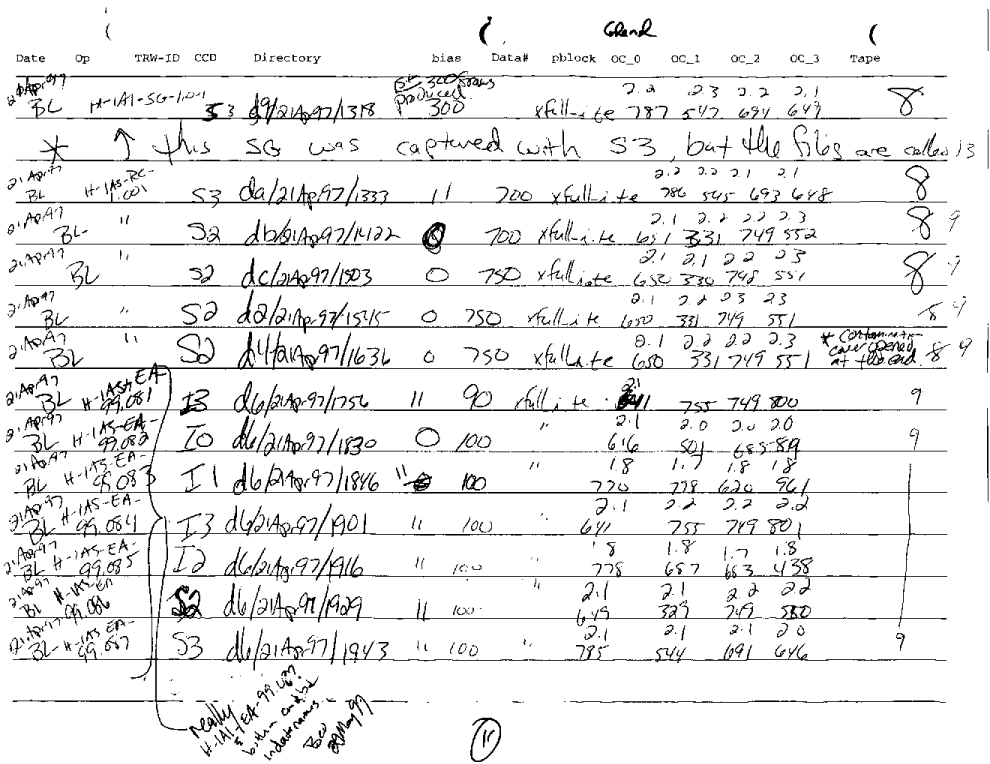 Date Op TRW-ID CCD Directory bias Data# pblock OC_0 OC_1 OC_2 OC_3 Tape
21Apr97 BL H-1A1-SG-1.01 S3 d9/21Apr97/1318 produced 300 xfull-ite 2.2 787 2.3 547 2.2 694 2.1 649 8
* ↑ this SG was captured with S3, but the files are called i3
21Apr97 BL H-1AS-RC-1.001 S3 da/21Apr97/1333 11 700 xfull-ite 2.2 786 2.2 545 2.1 693 2.1 648 8
21Apr97 BL " S2 db/21Apr97/1422 0 700 xfull-ite 2.1 651 2.2 331 2.2 749 2.3 552 8 9
21Apr97 BL " S2 dc/21Apr97/1503 0 750 xfull-ite 2.1 650 2.1 330 2.2 748 2.3 551 8 9
21Apr97 BL " S2 d2/21Apr97/1545 0 750 xfull-ite 2.1 650 2.2 331 2.3 749 2.3 551 8 9
21Apr97 BL " S2 d4/21Apr97/1636 0 750 xfull-ite 2.1 650 2.2 331 2.2 749 2.3 551 * Contamination cover opened at the end. 8 9
21Apr97 BL H-1AS-EA-99.081 I3 d6/21Apr97/1756 11 90 xfull-ite 2.1 641 755 749 800 9
21Apr97 BL H-1AS-EA-99.082 I0 d6/21Apr97/1830 0 100 " 2.1 616 2.0 501 2.0 685 2.0 819 9
21Apr97 BL H-1AS-EA-99.083 I1 d6/21Apr97/1846 11 100 " 1.8 770 1.7 778 1.8 620 1.8 961
21Apr97 BL H-1AS-EA-99.084 I3 d6/21Apr97/1901 11 100 " 2.1 641 2.2 755 2.2 749 2.2 801
21Apr97 BL H-1AS-EA-99.085 I2 d6/21Apr97/1916 11 100 " 1.8 778 1.8 687 1.7 683 1.8 438
21Apr97 BL H-1AS-EA-99.086 S2 d6/21Apr97/1929 11 100 " 2.1 649 2.1 329 2.2 749 2.2 550
21Apr97 BL H-1AS-EA-99.087 S3 d6/21Apr97/1943 11 100 " 2.1 785 2.1 544 2.1 691 2.0 646 9
really
H-1A1-EA-99.087